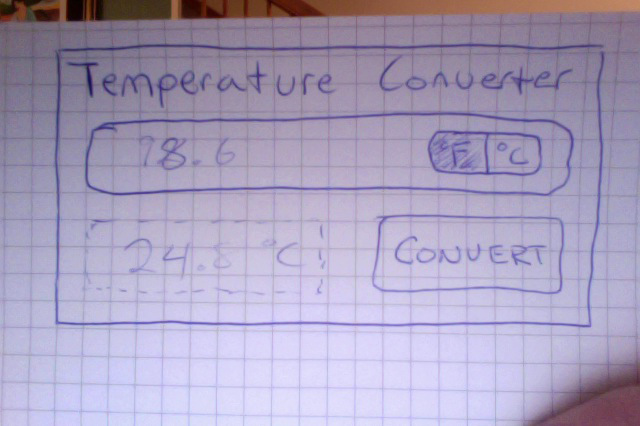 Temperature Converter
98.6 F °C
24.8 °C CONVERT